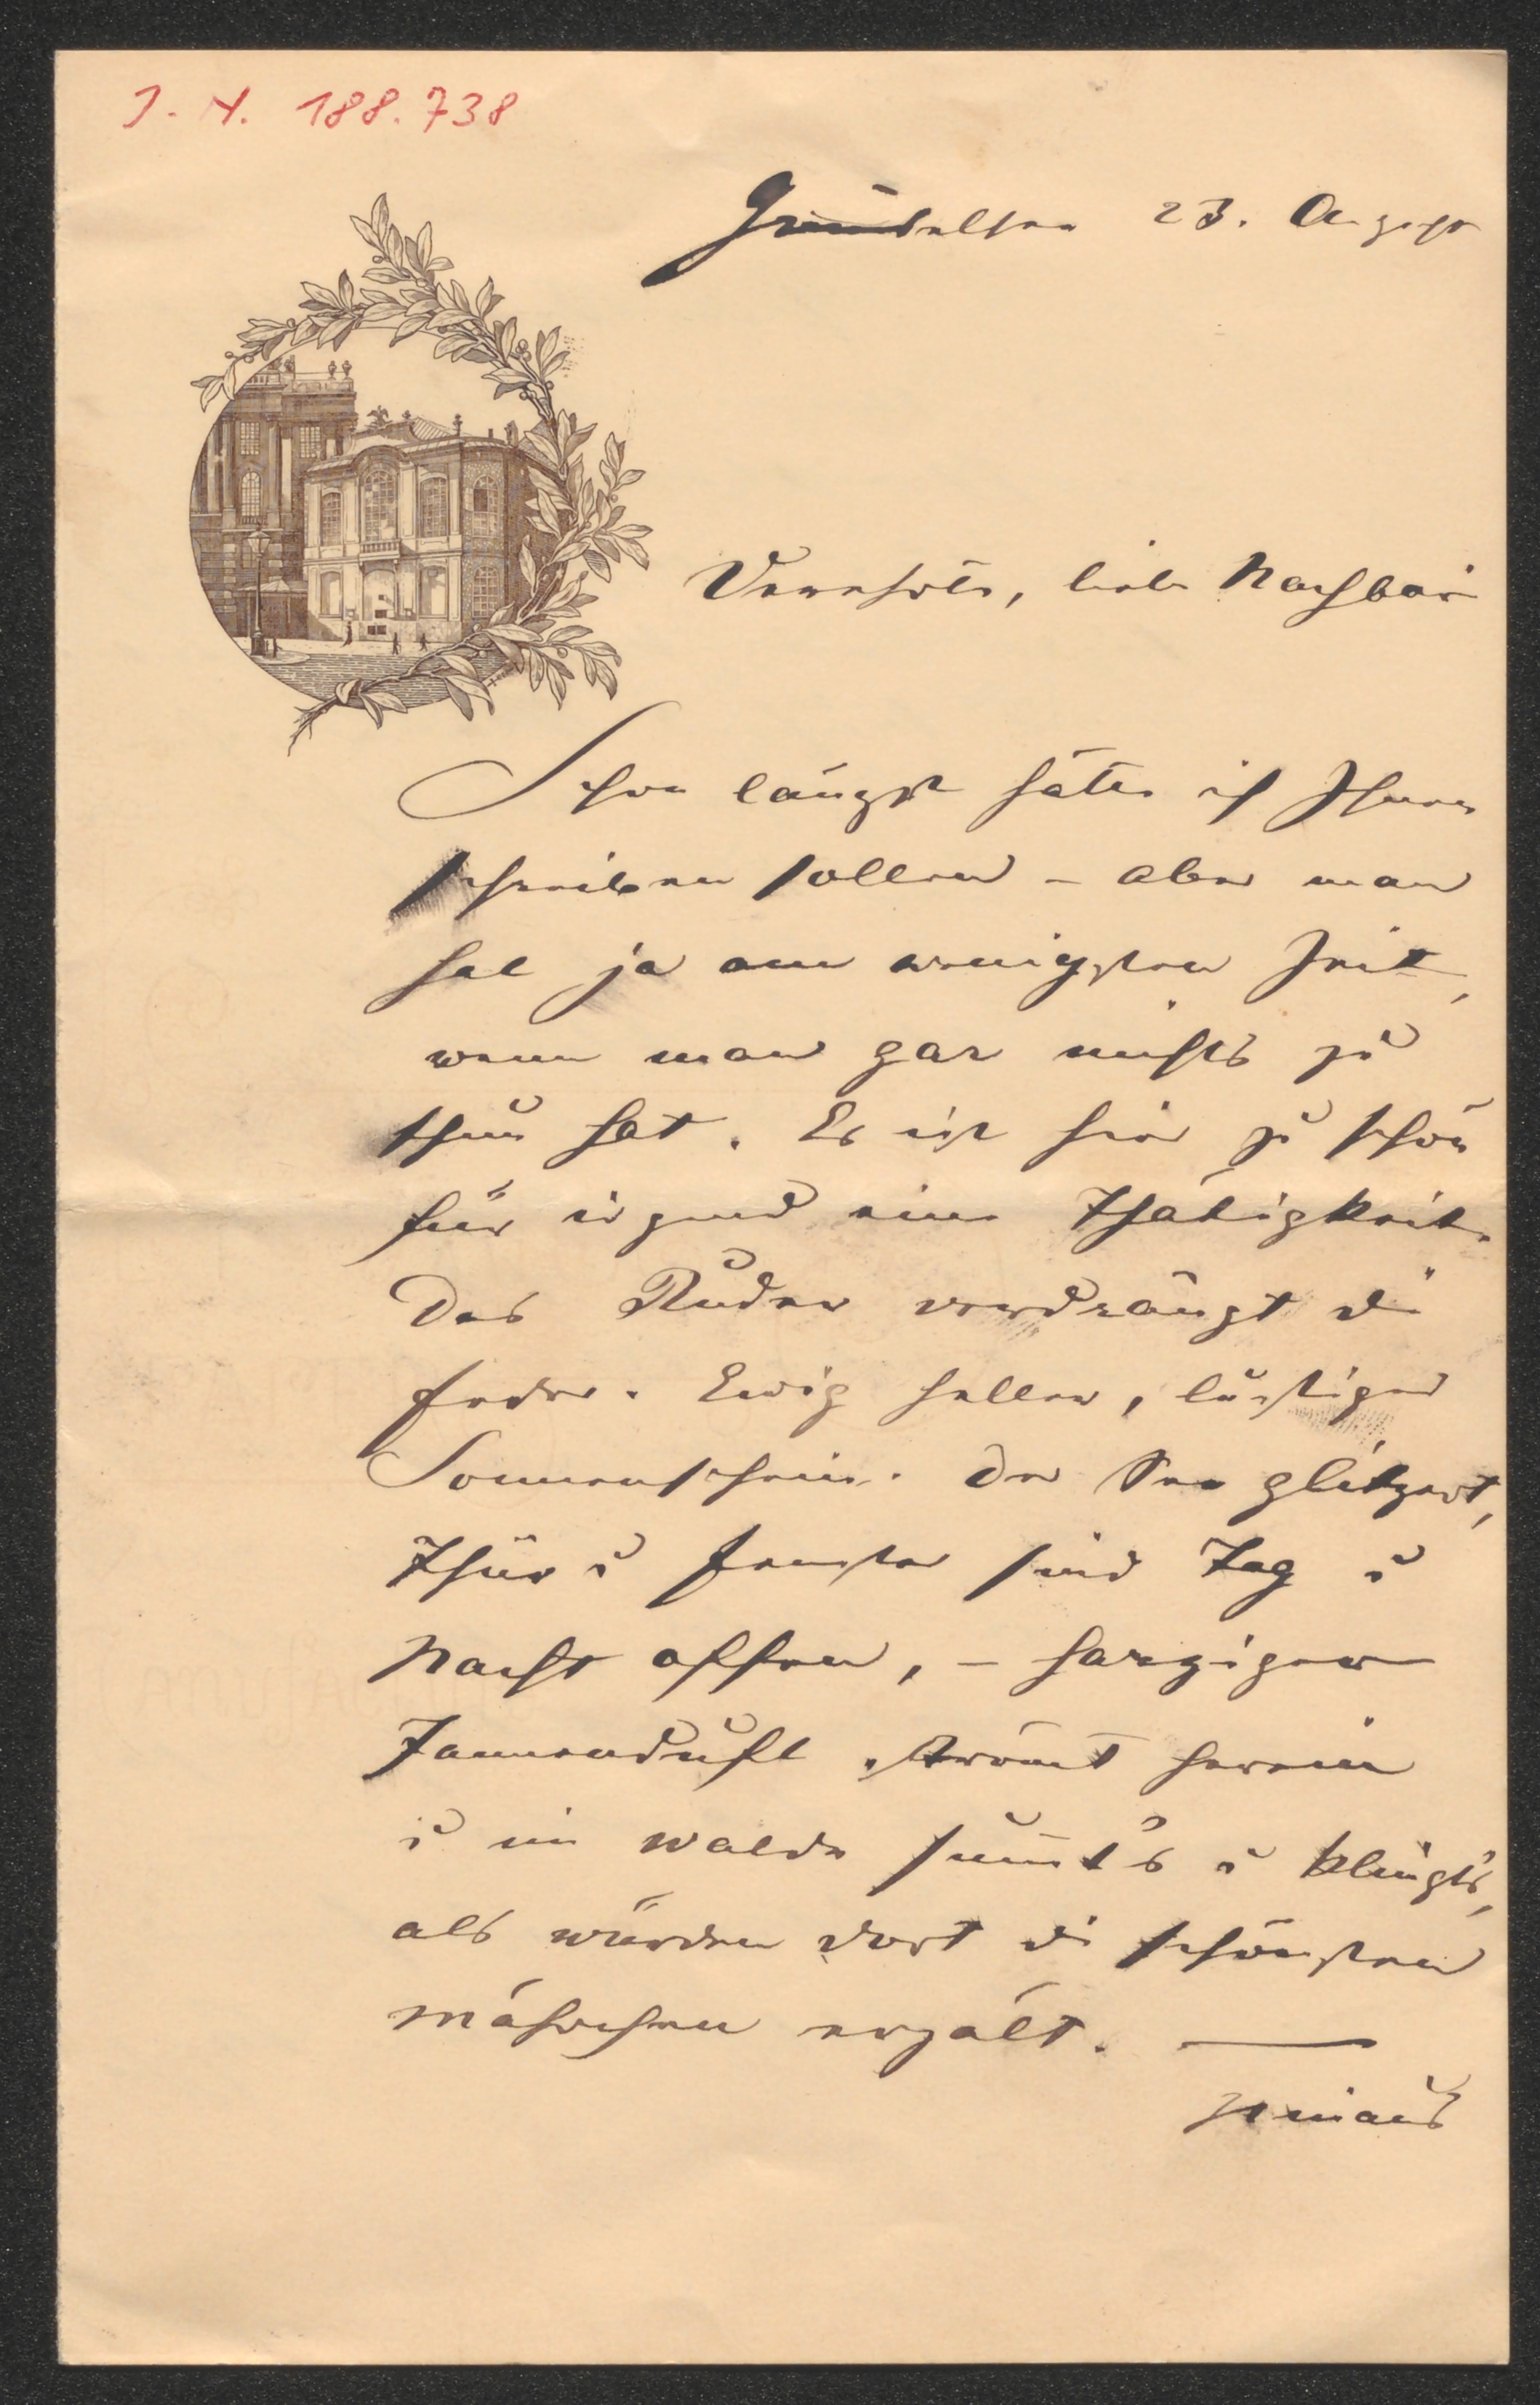 J. N. 188.738
Grundelsee 23. August
Verehrte, liebe Nachbarin
Schon längst hätte ich Ihnen
schreiben sollen – aber man
hat ja am wenigsten Zeit,
wenn man gar nichts zu
thun hat. Es ist hier zu schön
für irgend eine Thätigkeit.
Das Ruder verdrängt die
Feder. Ewig heller, lustiger
Sonnenschein. Der See glitzert,
Thür u Fenster sind Tag u
Nacht offen, – harziger
Tannenduft strömt herein
u im Walde summt's u klingt's,
als würden dort die schönsten
Mährchen erzält. —